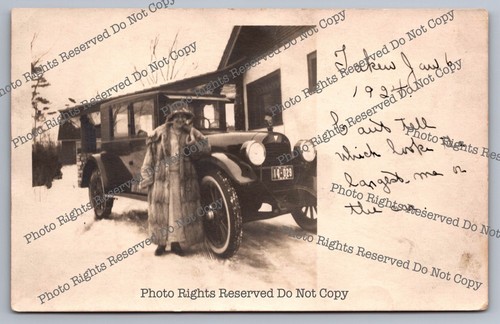 Taken Jan 6
1924.
Can't tell
which looks the
largest. me or
the car.
Photo Rights Reserved Do Not Copy
Photo Rights Reserved Do Not Copy
Photo Rights Reserved Do Not Copy
Photo Rights Reserved Do Not Copy
Photo Rights Reserved Do Not Copy
Photo Rights Reserved Do Not Copy
Photo Rights Reserved Do Not Copy
Photo Rights Reserved Do Not Copy
Photo Rights Reserved Do Not Copy
Photo Rights Reserved Do Not Copy
Photo Rights Reserved Do Not Copy